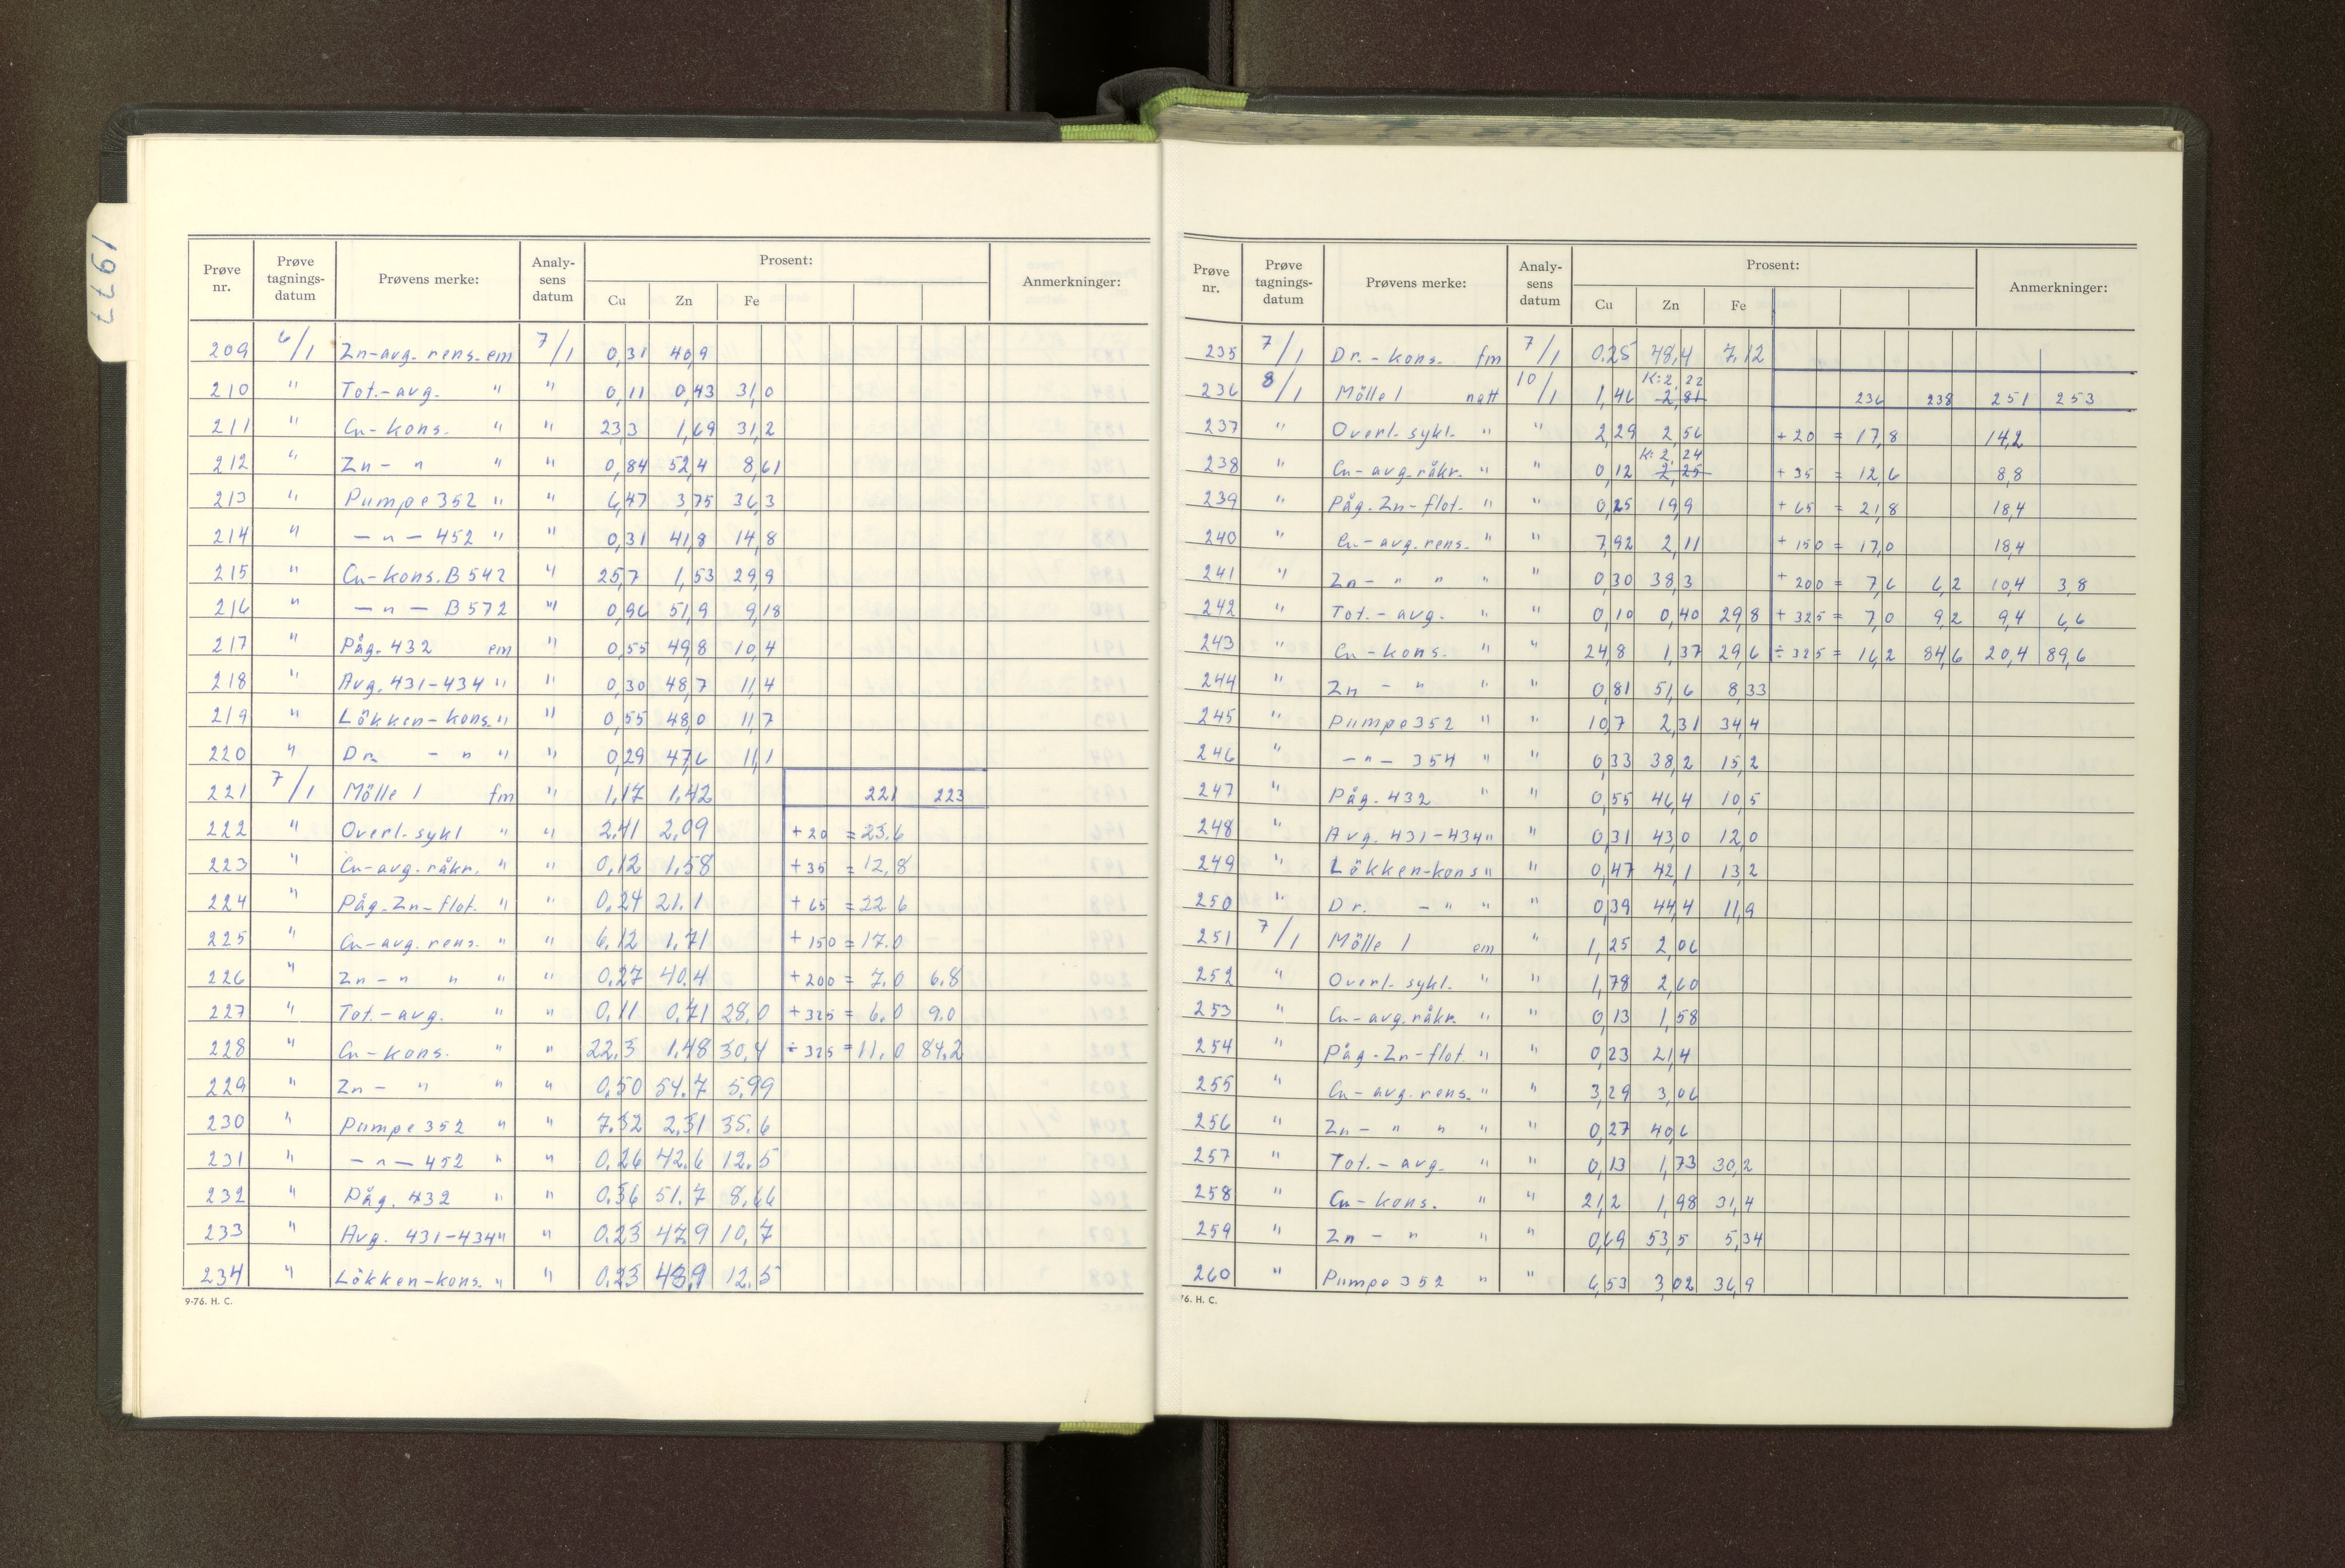 1977
Prøve nr. Prøve tagnings- datum Prøvens merke: Analy- sens datum Prosent: Anmerkninger:
Cu Zn Fe
209 6/1 Zn-avg. rens. em 7/1 0,31 40,9
210 " Tot.-avg. " " 0,11 0,43 31,0
211 " Cu-kons. " " 23,3 1,69 31,2
212 " Zn- " " " 0,84 52,4 8,61
213 " Pumpe 352 " " 6,47 3,75 36,3
214 " -"- 452 " " 0,31 41,8 14,8
215 " Cu-kons. B 542 " 25,7 1,53 29,9
216 " -"- B 572 " 0,96 51,9 9,18
217 " Påg. 432 em " 0,55 49,8 10,4
218 " Avg. 431-434 " " 0,30 48,7 11,4
219 " Lökken-kons. " " 0,55 48,0 11,7
220 " Dr. - " " " 0,29 47,6 11,1
221 7/1 Mölle 1 fm " 1,17 1,42 221 223
222 " Overl. sykl " " 2,41 2,09 +20 = 23,6
223 " Cu-avg. råkr. " " 0,12 1,58 +35 = 12,8
224 " Påg. Zn-flot. " " 0,24 21,1 +65 = 22,6
225 " Cu-avg. rens. " " 6,12 1,71 +150 = 17,0
226 " Zn- " " " " 0,27 40,4 +200 = 7,0 6,8
227 " Tot.-avg. " " 0,11 0,71 28,0 +325 = 6,0 9,0
228 " Cu-kons. " " 22,3 1,48 30,4 ÷325 = 11,0 84,2
229 " Zn- " " " 0,50 54,7 5,99
230 " Pumpe 352 " " 7,32 2,31 35,6
231 " -"- 452 " " 0,26 42,6 12,5
232 " Påg. 432 " " 0,36 51,7 8,66
233 " Avg. 431-434 " " 0,23 47,9 10,7
234 " Lökken-kons. " " 0,23 43,9 12,5
9-76. H. C.
Prøve nr. Prøve tagnings- datum Prøvens merke: Analy- sens datum Prosent: Anmerkninger:
Cu Zn Fe
235 7/1 Dr.-kons. fm 7/1 0,25 48,4 7,12
236 8/1 Mölle 1 natt 10/1 1,46 K: 2,22 2,81 236 238 251 253
237 " Overl. sykl. " " 2,29 2,56 +20 = 17,8 14,2
238 " Cu-avg. råkr. " " 0,12 K: 2,24 2,25 +35 = 12,6 8,8
239 " Påg. Zn-flot. " " 0,25 19,9 +65 = 21,8 18,4
240 " Cu-avg. rens. " " 7,92 2,11 +150 = 17,0 18,4
241 " Zn- " " " " 0,30 38,3 +200 = 7,6 6,2 10,4 3,8
242 " Tot.-avg. " " 0,10 0,40 29,8 +325 = 7,0 9,2 9,4 6,6
243 " Cu-kons. " " 24,8 1,37 29,6 ÷325 = 16,2 84,6 20,4 89,6
244 " Zn - " " " 0,81 51,6 8,33
245 " Pumpe 352 " " 10,7 2,31 34,4
246 " -"- 354 " " 0,33 38,2 15,2
247 " Påg. 432 " " 0,55 46,4 10,5
248 " Avg. 431-434 " " 0,31 43,0 12,0
249 " Lökken-kons " " 0,47 42,1 13,2
250 " Dr. - " " " 0,39 44,4 11,9
251 7/1 Mölle 1 em " 1,25 2,06
252 " Overl. sykl. " " 1,78 2,60
253 " Cu-avg. råkr. " " 0,13 1,58
254 " Påg. Zn-flot. " " 0,23 21,4
255 " Cu-avg. rens. " " 3,29 3,06
256 " Zn- " " " " 0,27 40,6
257 " Tot.-avg. " " 0,13 1,73 30,2
258 " Cu-kons. " " 21,2 1,98 31,4
259 " Zn - " " " 0,69 53,5 5,34
260 " Pumpe 352 " " 6,53 3,02 36,9
76. H. C.